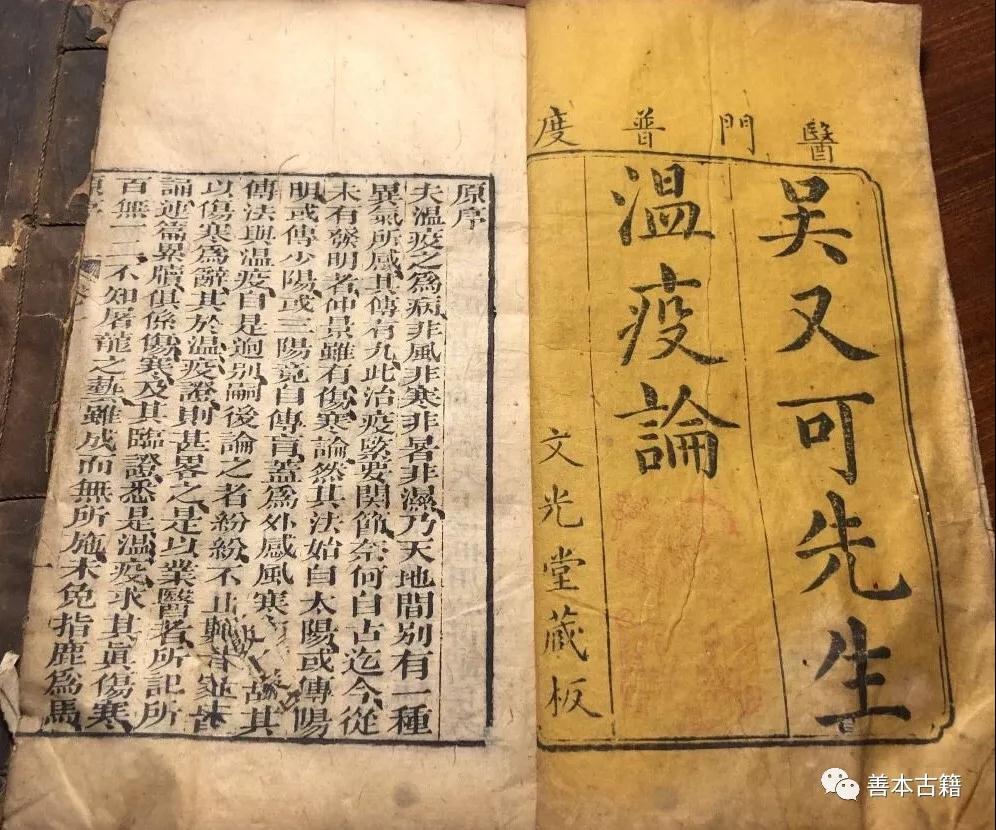 醫門普度
吳又可先生
温疫論
文光堂藏板
原序
夫温疫之為病非風非寒非暑非濕乃天地間別有一種
異氣所感其傳有九此治疫緊要関節奈何自古迄今從
未有發明者仲景雖有傷寒論然其法始自太陽或傳陽
明或傳少陽或三陽竟自傳胃蓋為外感風寒故其
傳法與温疫自是逈別嗣後論之者紛紛不止數十家皆
以傷寒為辭其於温疫證則甚畧之是以業醫者所記所
誦連篇累牘俱係傷寒及其臨證悉是温疫求其眞傷寒
百無一二不知屠龍之藝雖成而無所施未免指鹿為馬
原序
善本古籍